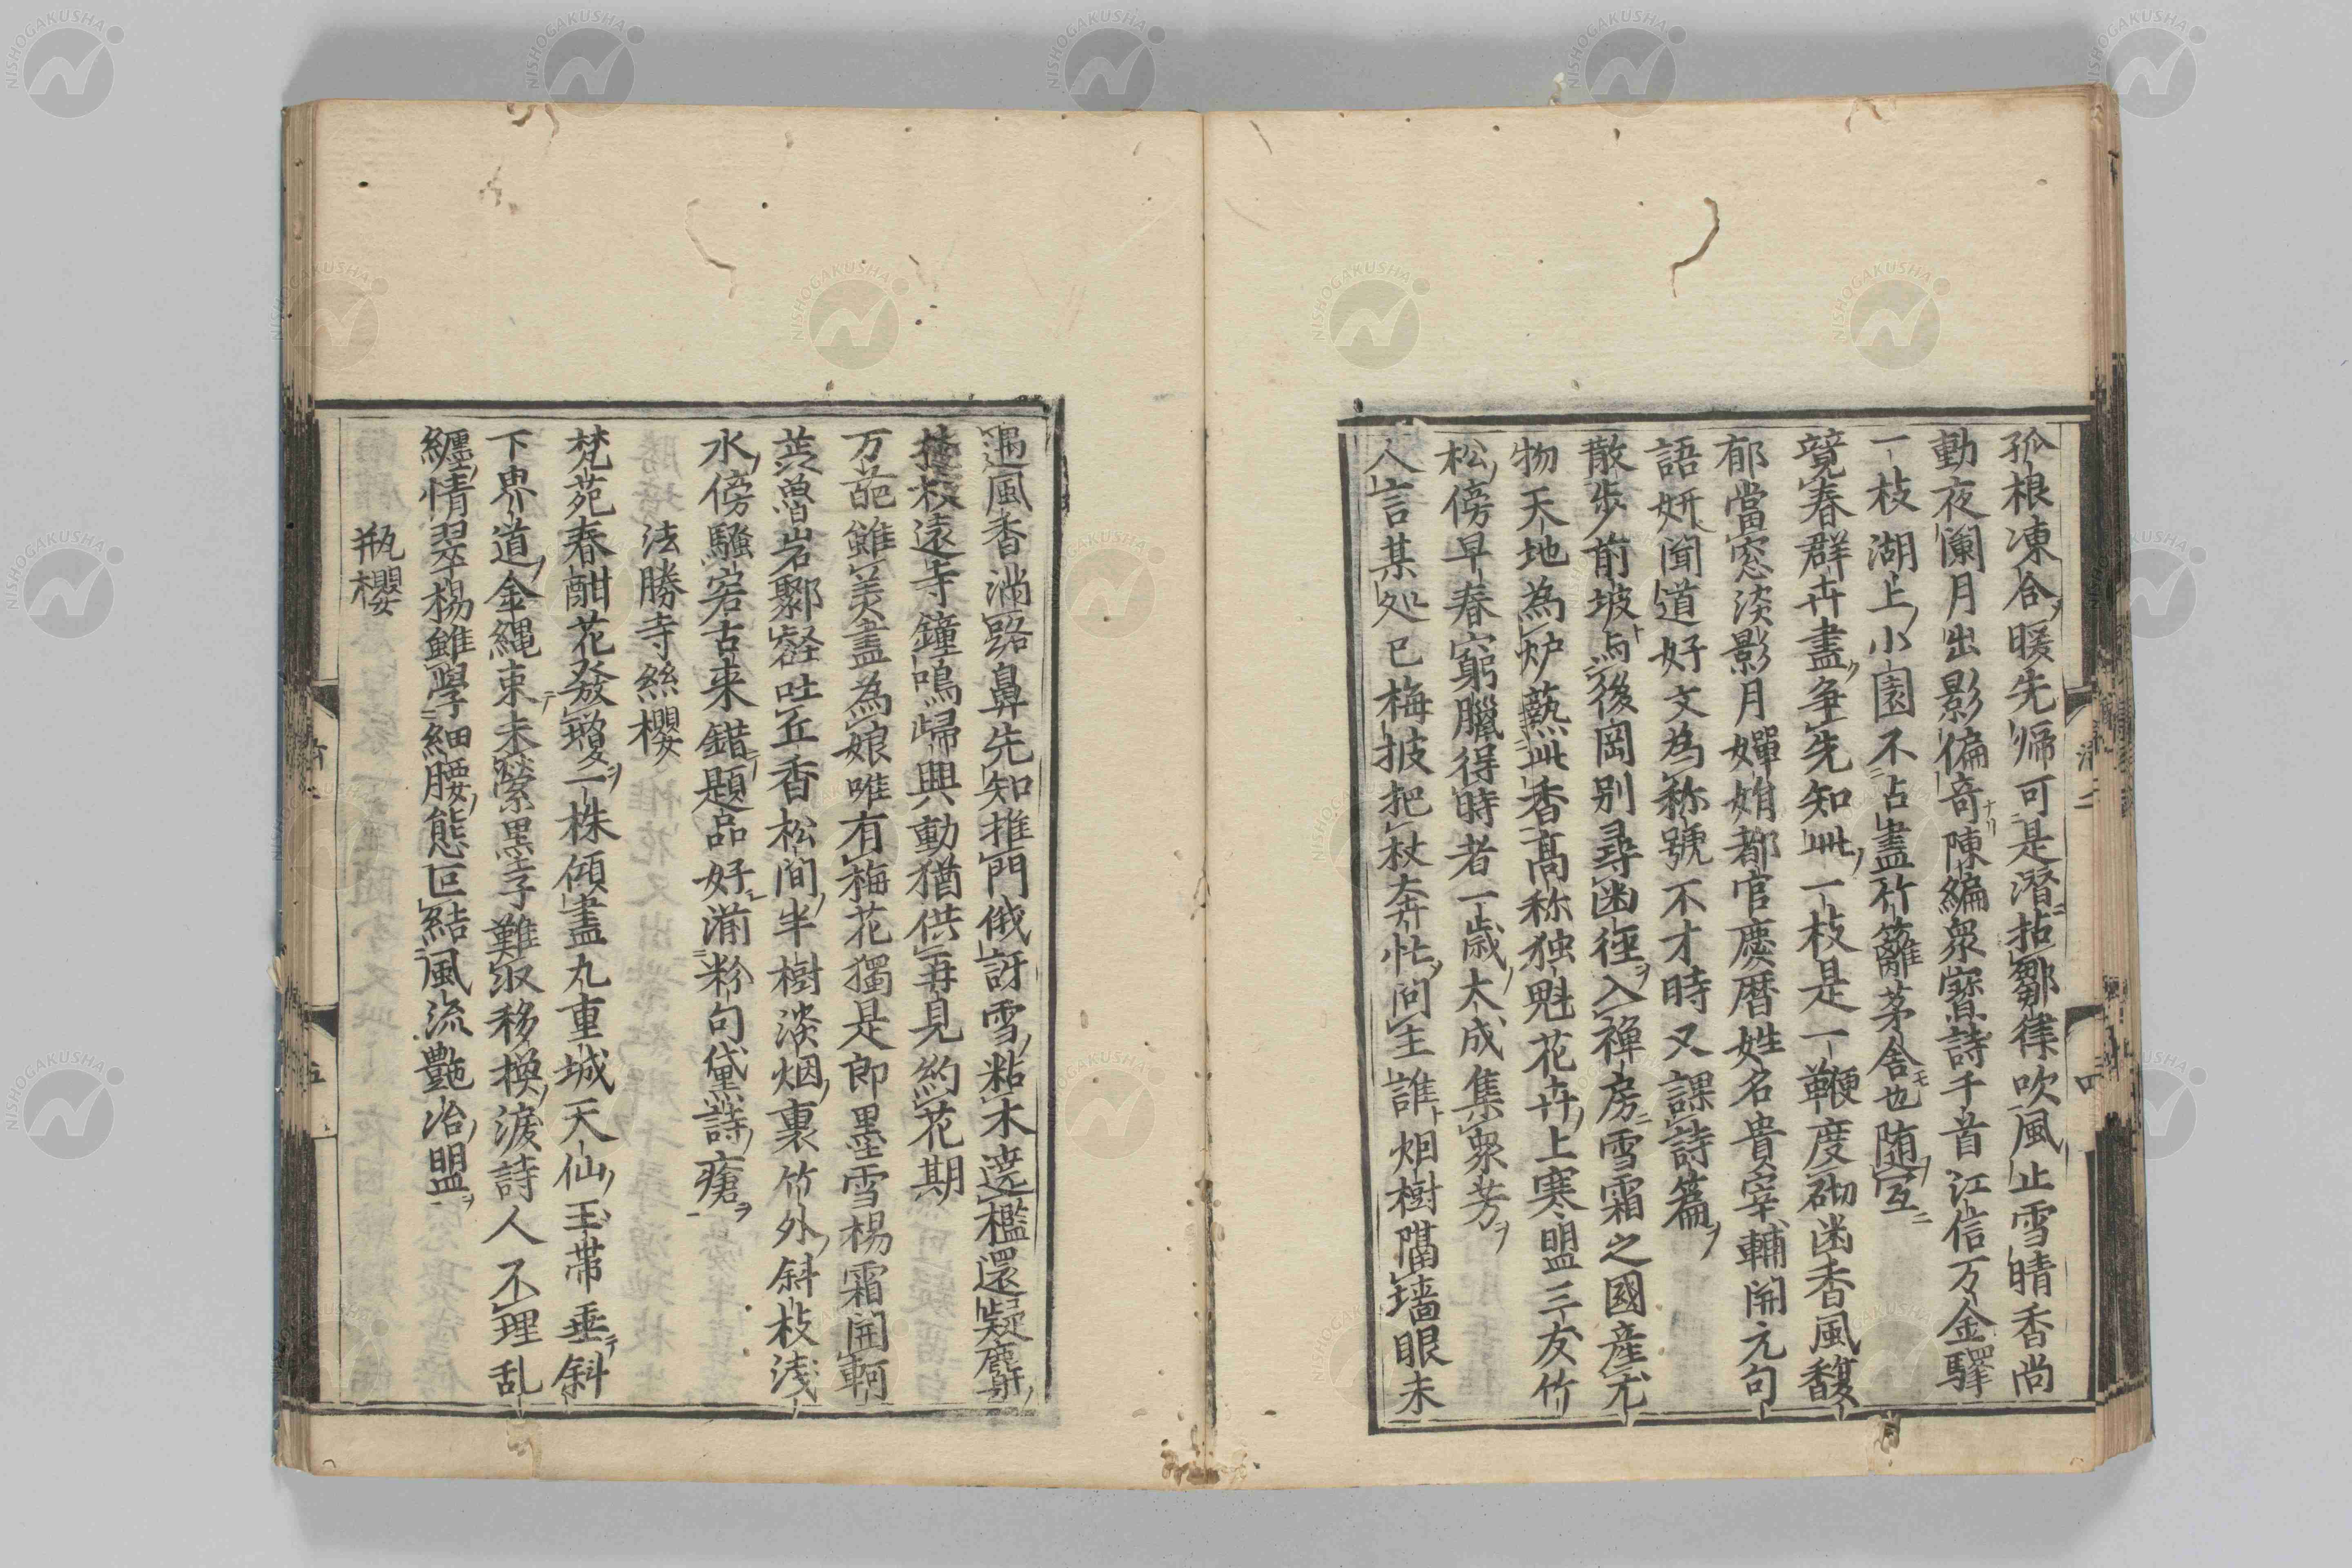 孤根凍合暖先帰可是潜拈鄒律吹風止雪晴香尚
動夜闌月出影偏奇陳編衆寳詩千首江信万金驛
一枝湖上小園不占盡竹籬茅舎也随宜
競春群卉盡争先知此一枝是一鞭度砌幽香風馥
郁當窓淡影月嬋娟都官慶暦姓名貴宰輔開元句
語妍聞道好文為称號不才時又課詩篇
散歩前坡与後岡別尋幽徑入禅房雪霜之國産尤
物天地為炉爇此香高称独魁花卉上寒盟三友竹
松傍早春窮臘得時者一歳大成集衆芳
人言某処已梅披把杖奔忙问主誰烟樹隔墙眼未
遇風香満路鼻先知推門俄訝雪粘木遶檻還疑麝
枝遠寺鐘鳴帰興動猶供再見約花期
万葩雖美盡為娘唯有梅花獨是郎墨雪楊霜開
岩鄹吐五香松间半樹淡烟裏竹外斜枝浅
水傍騒客古来錯題品好湔粉句黛詩瘡
法勝寺絲櫻
梵苑春酣花發瓊一株傾盡九重城天仙玉帯垂斜
下界道金縄束未縈黒幸難収移換渡詩人不理乱
纏情翠楊雖學細腰態叵結風流艶冶盟
瓶櫻
四
五
NISHOGAKUSHA